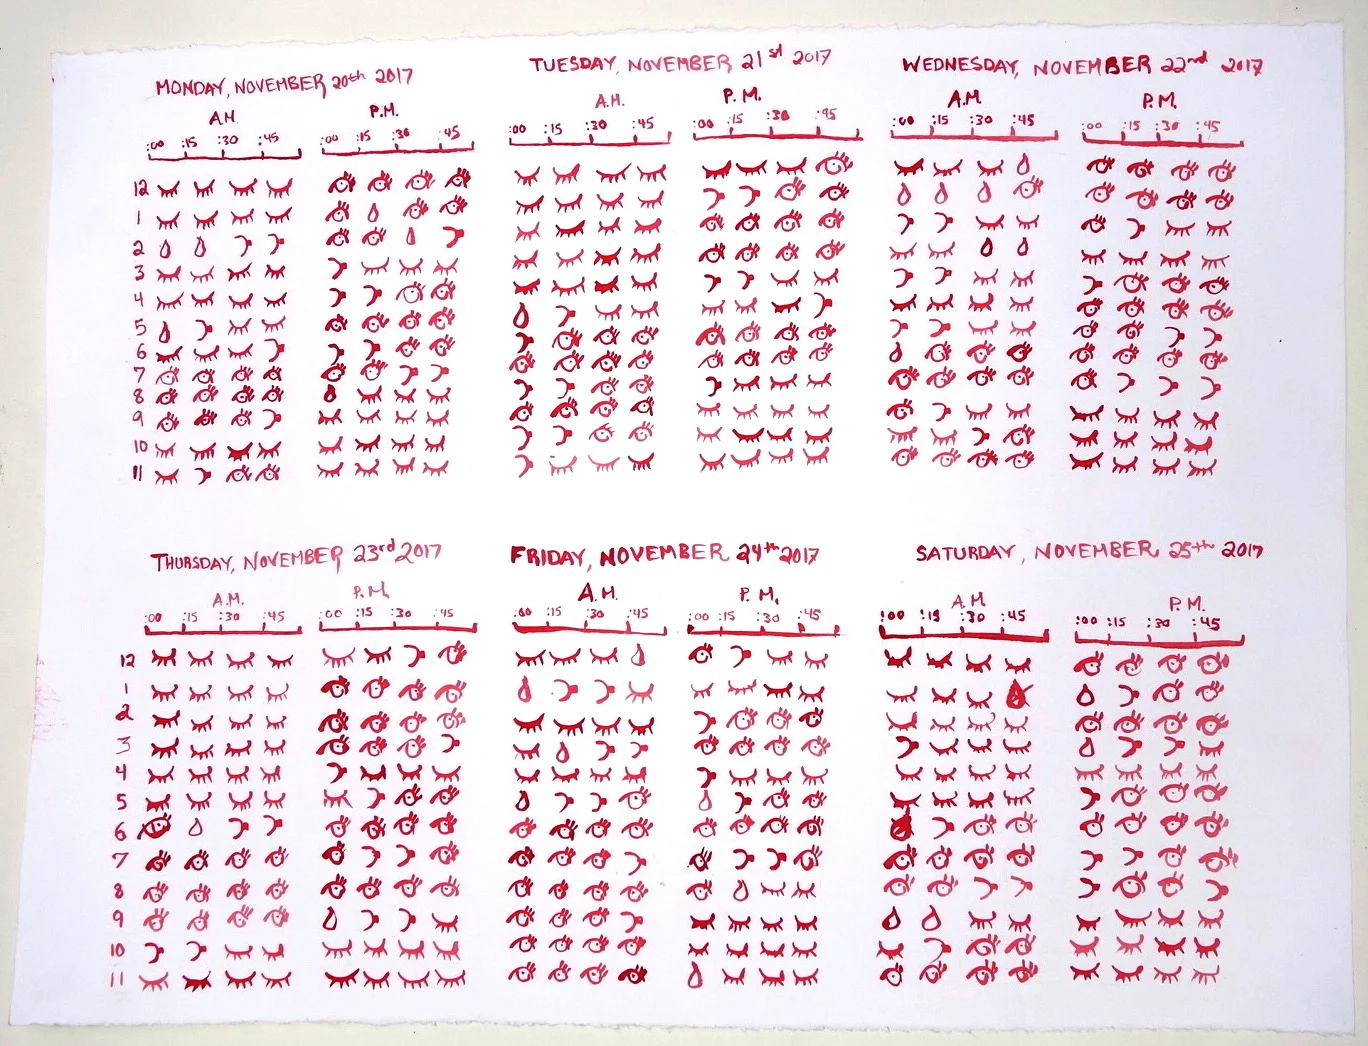 MONDAY, NOVEMBER 20th 2017
A.M. P.M.
:00 :15 :30 :45 :00 :15 :30 :45
TUESDAY, NOVEMBER 21st 2017
A.M. P.M.
:00 :15 :30 :45 :00 :15 :30 :45
WEDNESDAY, NOVEMBER 22nd 2017
A.M. P.M.
:00 :15 :30 :45 :00 :15 :30 :45
12
1
2
3
4
5
6
7
8
9
10
11
THURSDAY, NOVEMBER 23rd 2017
A.M. P.M.
:00 :15 :30 :45 :00 :15 :30 :45
FRIDAY, NOVEMBER 24th 2017
A.M. P.M.
:00 :15 :30 :45 :00 :15 :30 :45
SATURDAY, NOVEMBER 25th 2017
A.M. P.M.
:00 :15 :30 :45 :00 :15 :30 :45
12
1
2
3
4
5
6
7
8
9
10
11